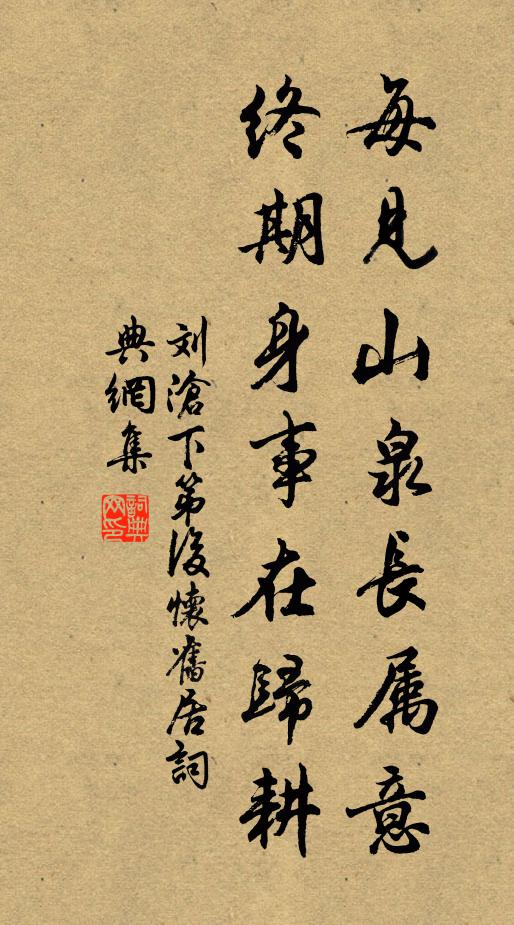 每見山泉長属意
終期身事在歸耕
刘滄下第後懷舊居詞
典網集
詞典網印